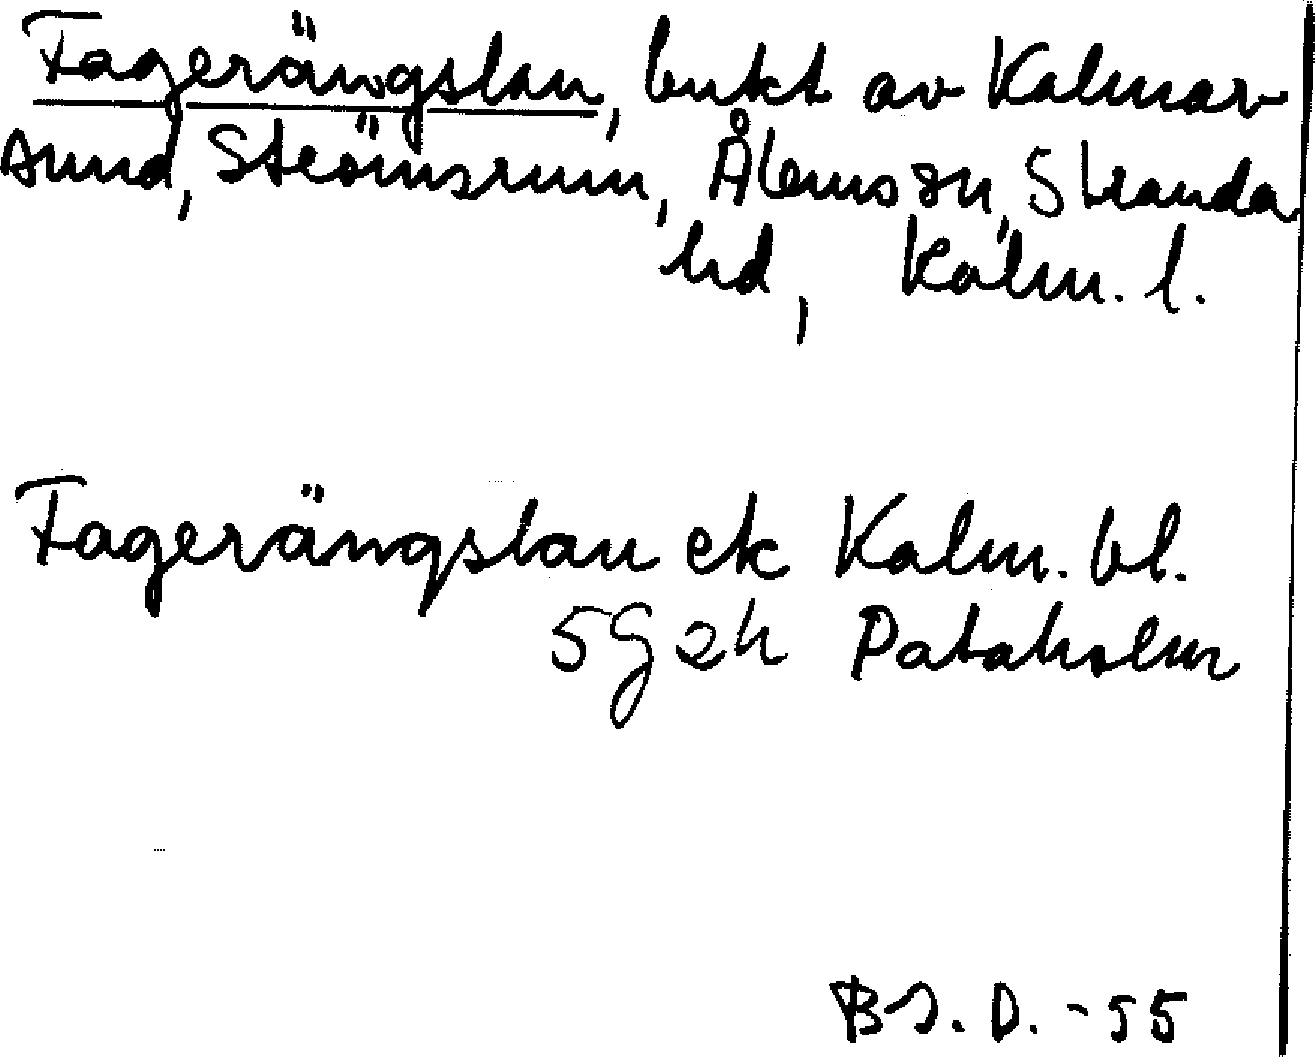 Fagerängslan, bukt av Kalmar
sund, Strömsrum, Ålems sn, Stranda
hd, Kalm. l.
Fagerängslan ek Kalm. bl.
5G2h Pataholm
BJ. D. -55